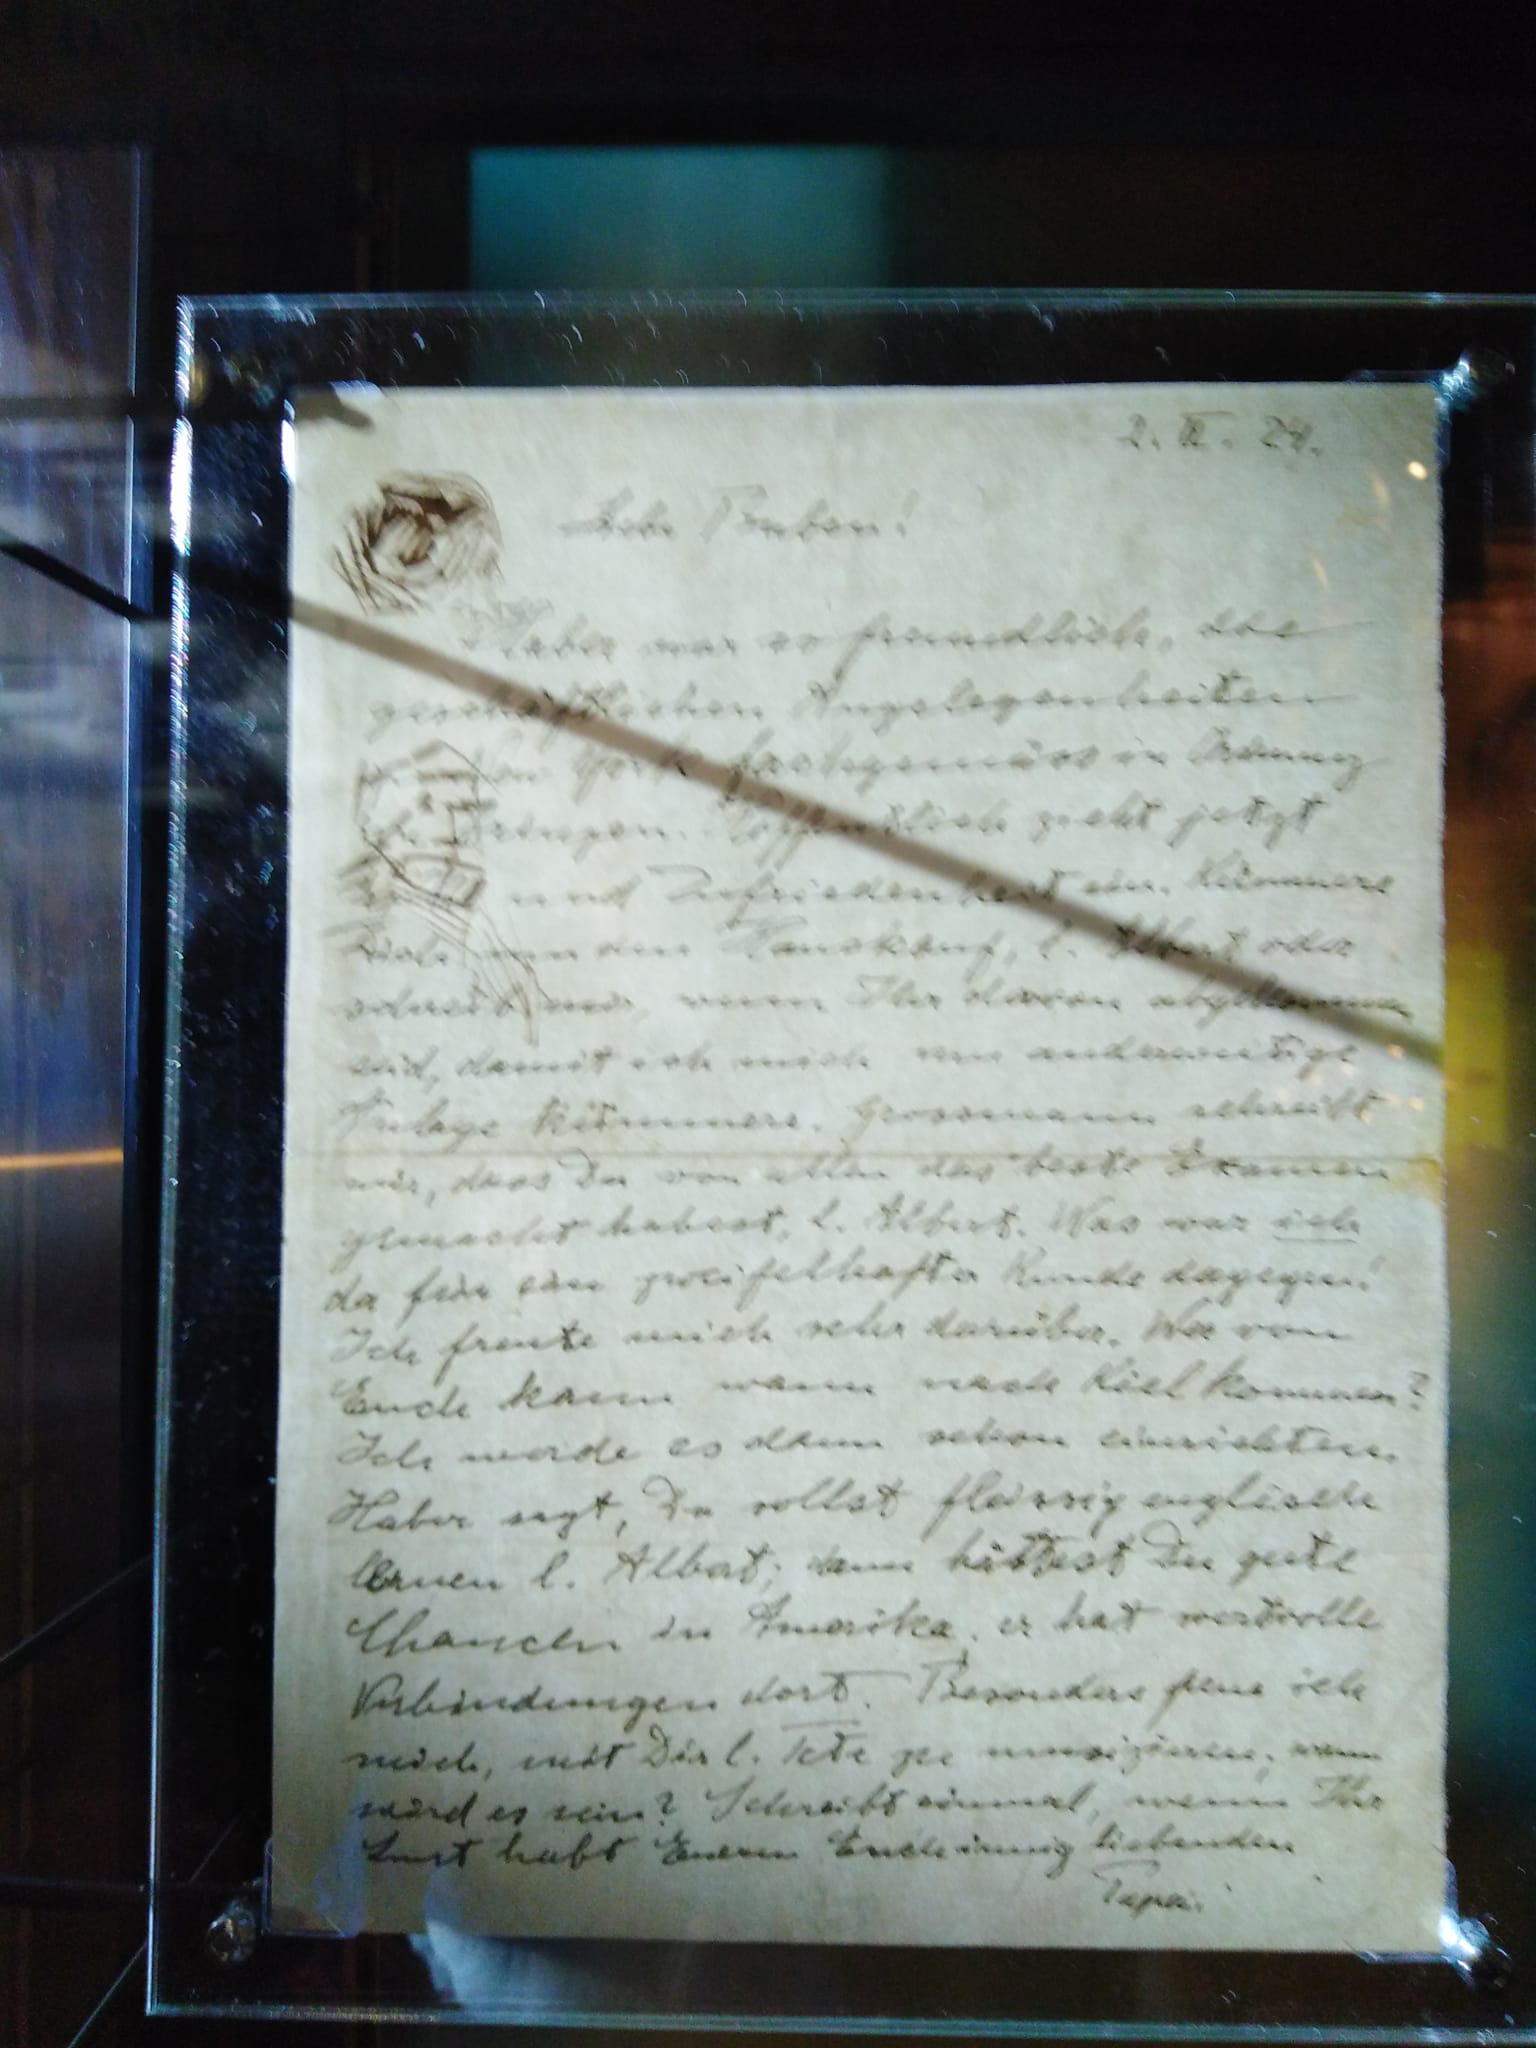 2. II. 24.
Liebe Buben!
Haber war so freundlich, die
geschäftlichen Angelegenheiten
in New York fachgemäss in Ordnung
zu bringen. Hoffentlich zieht jetzt
und Zufriedenheit ein. Kümmere
Dich um den Hauskauf, l. Albert oder
schreib mir, wenn Ihr davon abgekommen
seid, damit ich mich um anderweitige
Anlage kümmere. Grossmann schreibt
mir, dass Du von allen das beste Examen
gemacht habest, l. Albert. Was war ich
da für ein zweifelhafter Kunde dagegen!
Ich freute mich sehr darüber. Wer von
Euch kann wann nach Kiel kommen?
Ich werde es dann schon einrichten.
Haber sagt, Du sollst fleissig englisch
lernen l. Albert; dann hättest Du gute
Chancen in Amerika; er hat wertvolle
Verbindungen dort. Besonders freue ich
mich, mit Dir l. Tete zu musizieren; wann
wird es sein? Schreibt einmal, wenn Ihr
Lust habt Eurem Euch innig liebenden
Papa.